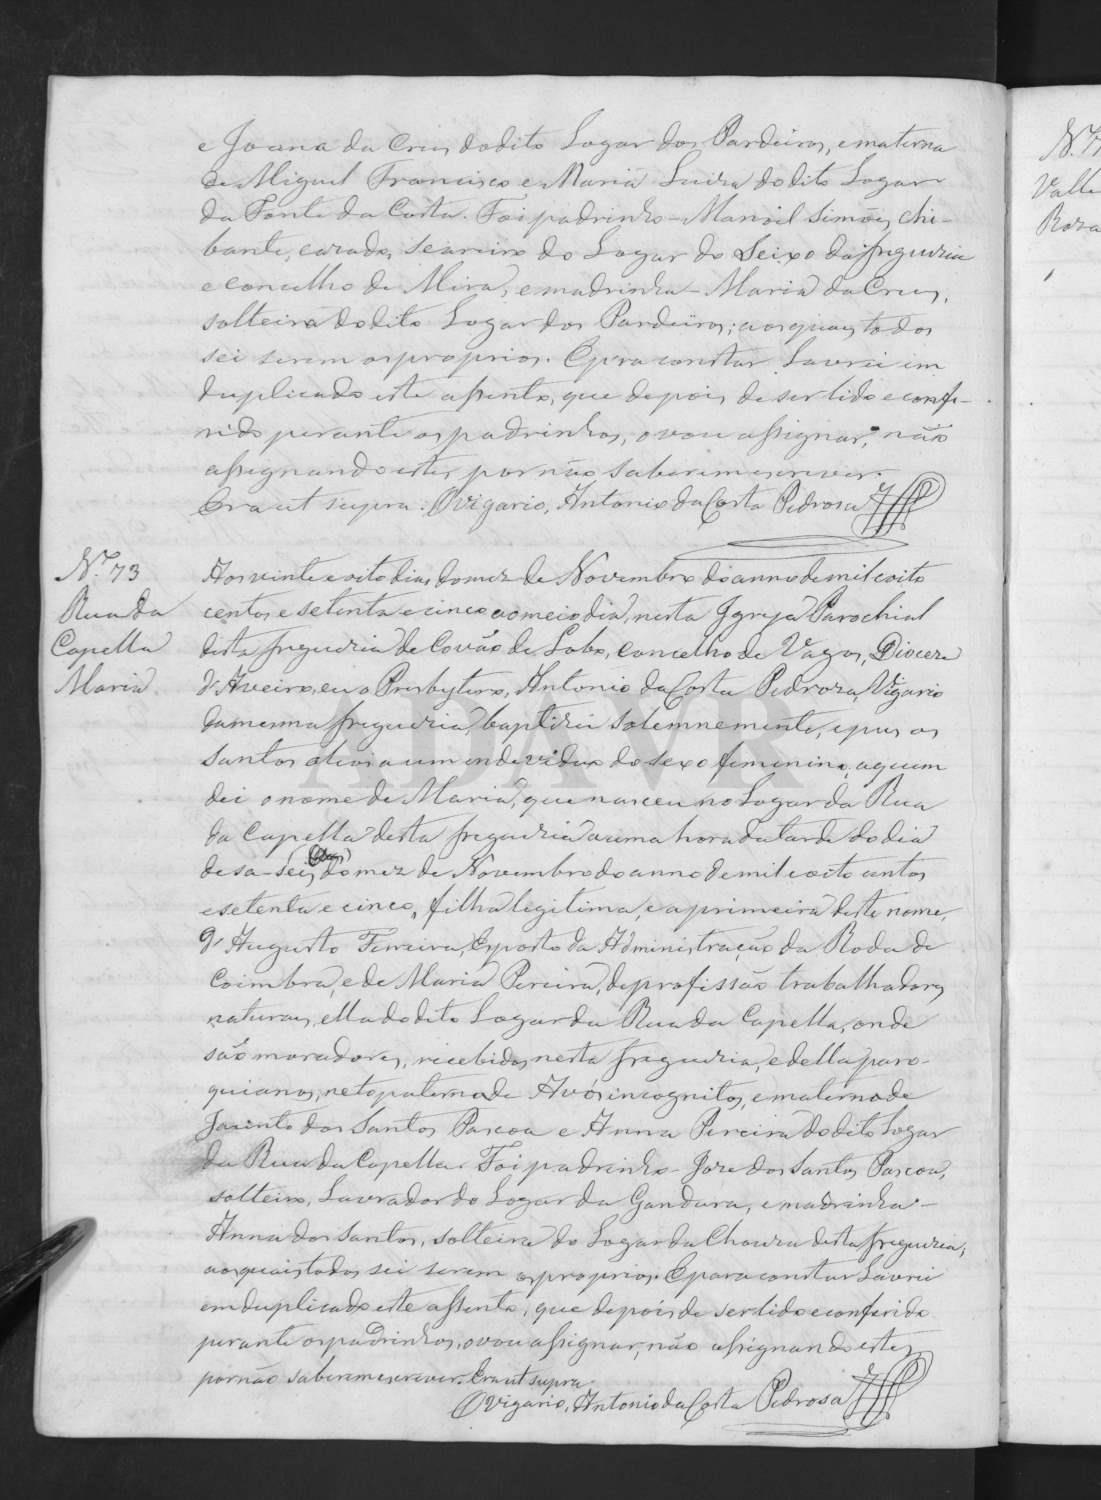 e Joanna da Crus, do dito Logar dos Pardeiros, e materna
de Miguel Francisco e Maria Luiza do dito Logar
da Fonte da Costa. Foi padrinho - Manoel Simões, chi-
bante, casado, seareiro do Logar do Seixo da freguezia
e concelho de Mira, e madrinha - Maria da Crus,
solteira do dito Logar dos Pardeiros; aos quaes todos
sei serem os proprios. E para constar lavrei em
duplicado este assento, que depois de ser lido e confe-
rido perante os padrinhos, o vou assignar, não
assignando estes por não saberem escrever.
Era ut supra. O Vigario, Antonio da Costa Pedrosa
N.º 73
Rua da
Capella
Maria
Aos vinte e oito dias do mez de Novembro do anno de mil e oito
centos e setenta e cinco ao meio dia, nesta Igreja Parochial
desta freguezia de Covão de Lobo, concelho de Vagos, Diocese
d'Aveiro, eu o Presbytero, Antonio da Costa Pedrosa, Vigario
da mesma freguezia, baptizei solemnemente, e pus os
santos oleos a um individuo do sexo feminino, a quem
dei o nome de Maria, que nasceu no Logar da Rua
da Capella desta freguezia a uma hora da tarde do dia
desa-seis do mez de Novembro do anno de mil e oito centos
e setenta e cinco, filha legitima, e a primeira deste nome,
d'Augusto Ferreira, Exposto da Administração da Roda de
Coimbra, e de Maria Pereira, de profissão trabalhadores
naturaes, ella do dito Logar da Rua da Capella, onde
são moradores, recebidos nesta freguezia, e della paro-
quianos, neto paterno de Avós incognitos, e materno de
Jacinto dos Santos Pascoa e Anna Pereira do dito Logar
da Rua da Capella. Foi padrinho - Jose dos Santos Pascoa,
solteiro, Lavrador do Logar da Gandara, e madrinha -
Anna dos Santos, solteira do Logar da Choura desta freguezia,
aos quais todos sei serem os proprios. E para constar Lavrei
em duplicado este assento, que depois de ser lido e conferido
perante os padrinhos, o vou assignar, não assignando estes
por não saberem escrever. Era ut supra.
O Vigario, Antonio da Costa Pedrosa
N.º 7
Valle
Roza
ADAVR